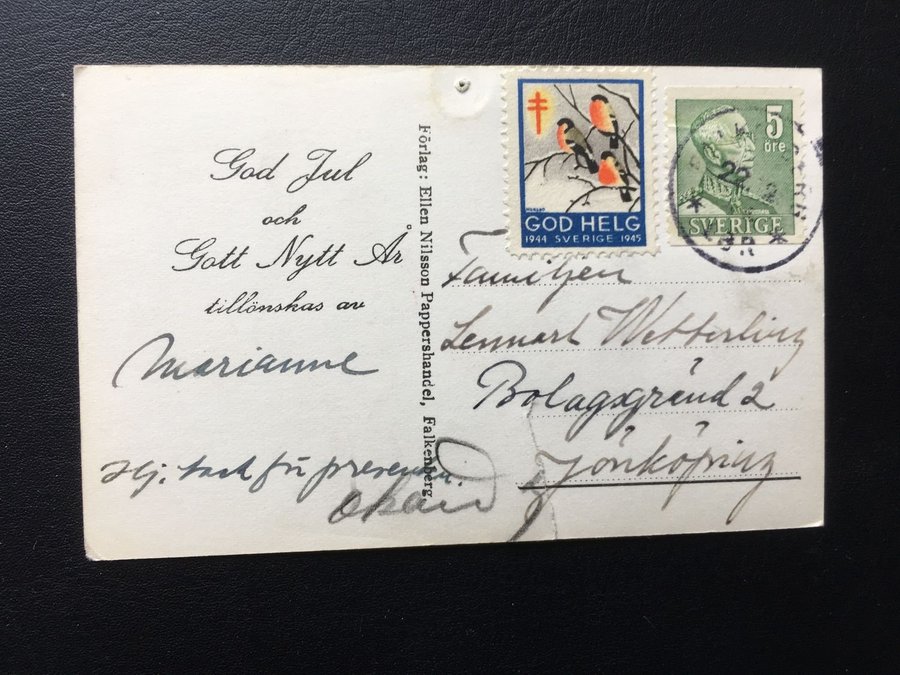 God Jul
och
Gott Nytt År
tillönskas av
Marianne
Hj. tack för presenten.
Förlag: Ellen Nilsson Pappershandel, Falkenberg.
GOD HELG
1944 SVERIGE 1945
5
öre
SVERIGE
22
Familjen
Lennart Wetterling
Bolagsgränd 2
Jönköping